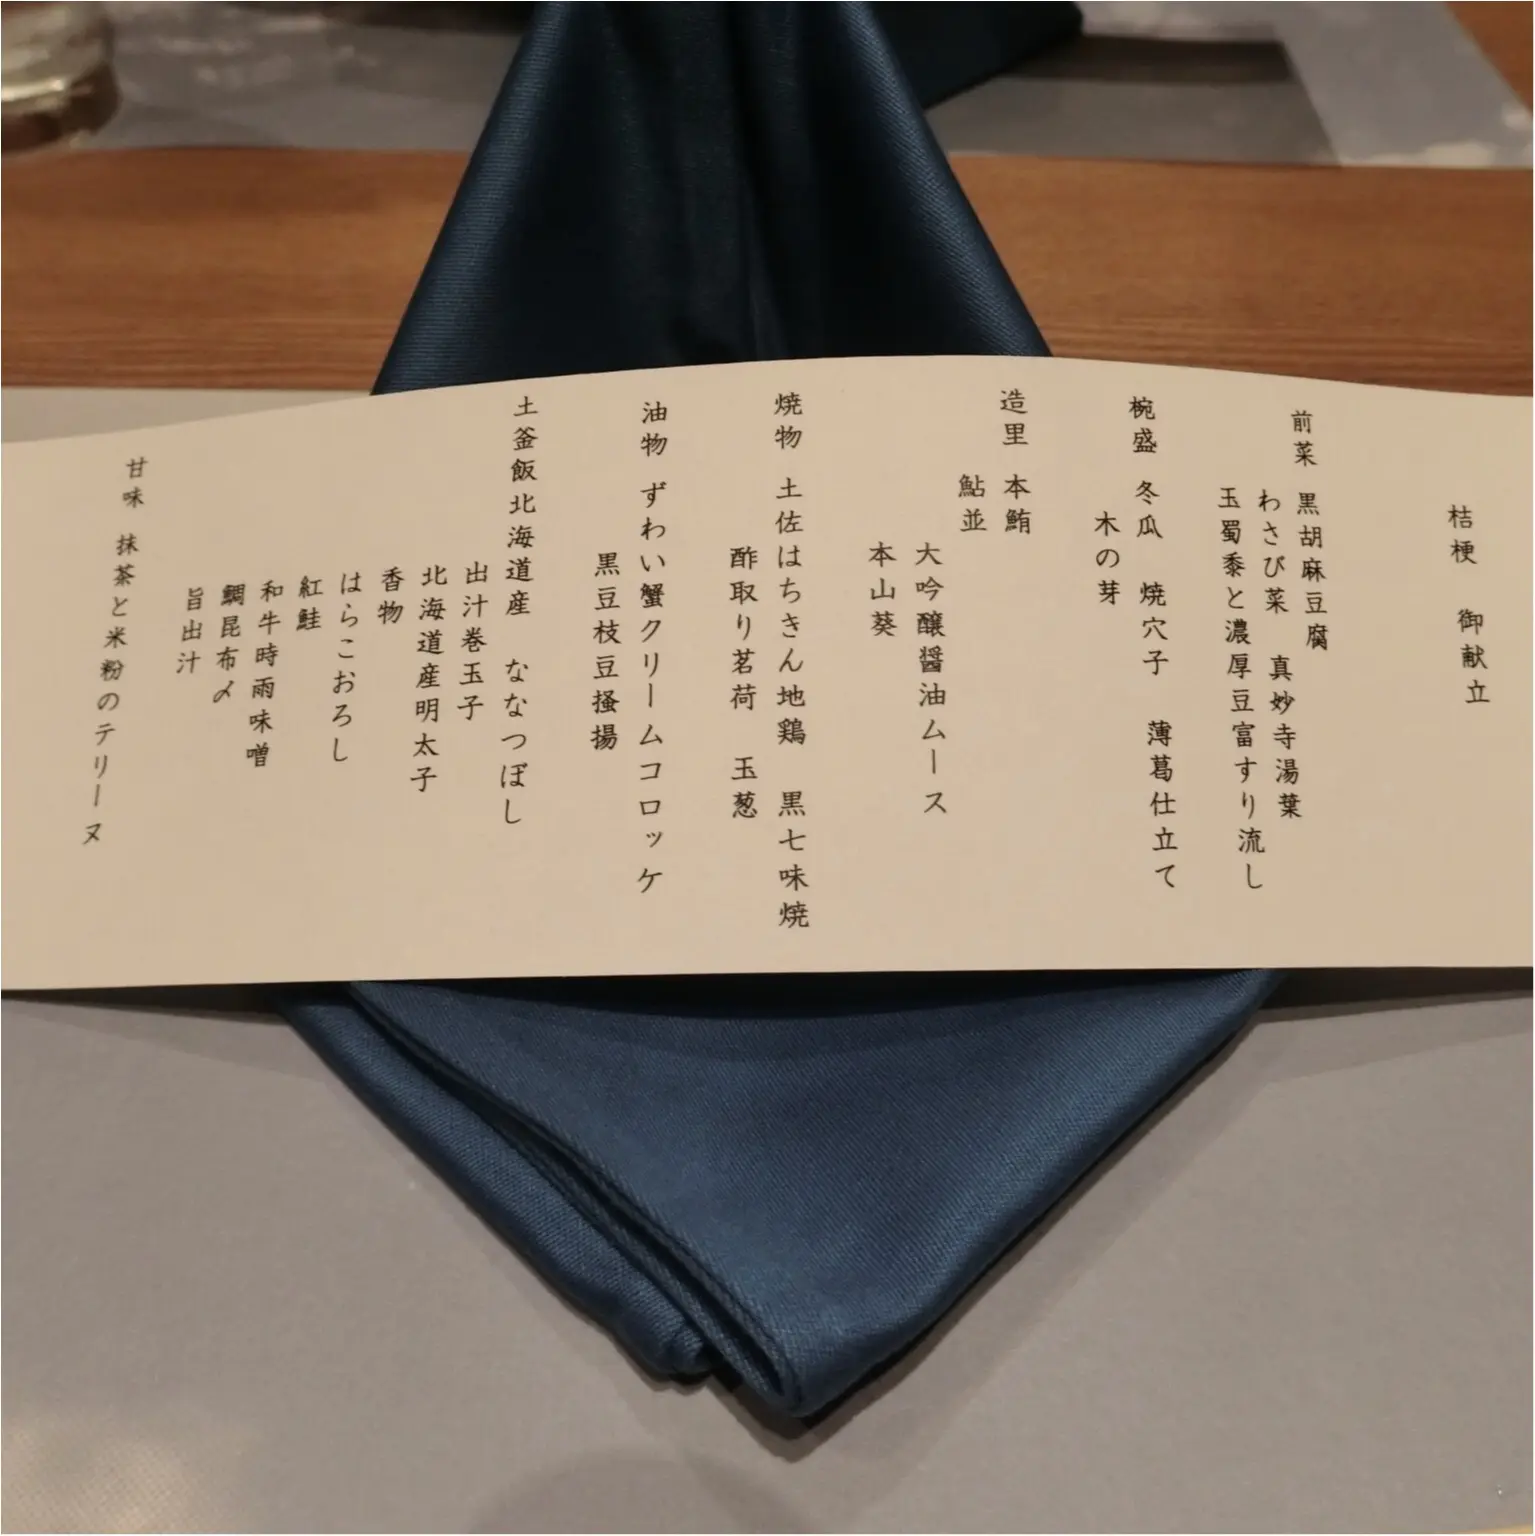 桔梗　御献立
前菜　黒胡麻豆腐
わさび菜　真妙寺湯葉
玉蜀黍と濃厚豆富すり流し
椀盛　冬瓜　焼穴子　薄葛仕立て
木の芽
造里　本鮪
鮎並
大吟醸醤油ムース
本山葵
焼物　土佐はちきん地鶏　黒七味焼
酢取り茗荷　玉葱
油物　ずわい蟹クリームコロッケ
黒豆枝豆掻揚
土釜飯　北海道産　ななつぼし
出汁巻玉子
北海道産明太子
香物
はらこおろし
紅鮭
和牛時雨味噌
鯛昆布〆
旨出汁
甘味　抹茶と米粉のテリーヌ